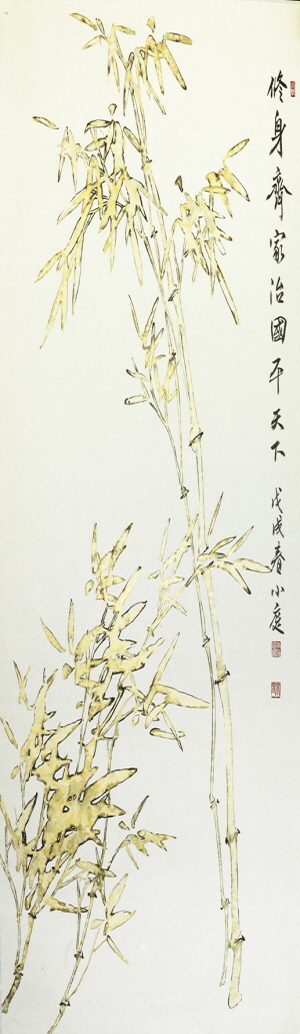 修身齊家治國平天下 戊戌春 小庭